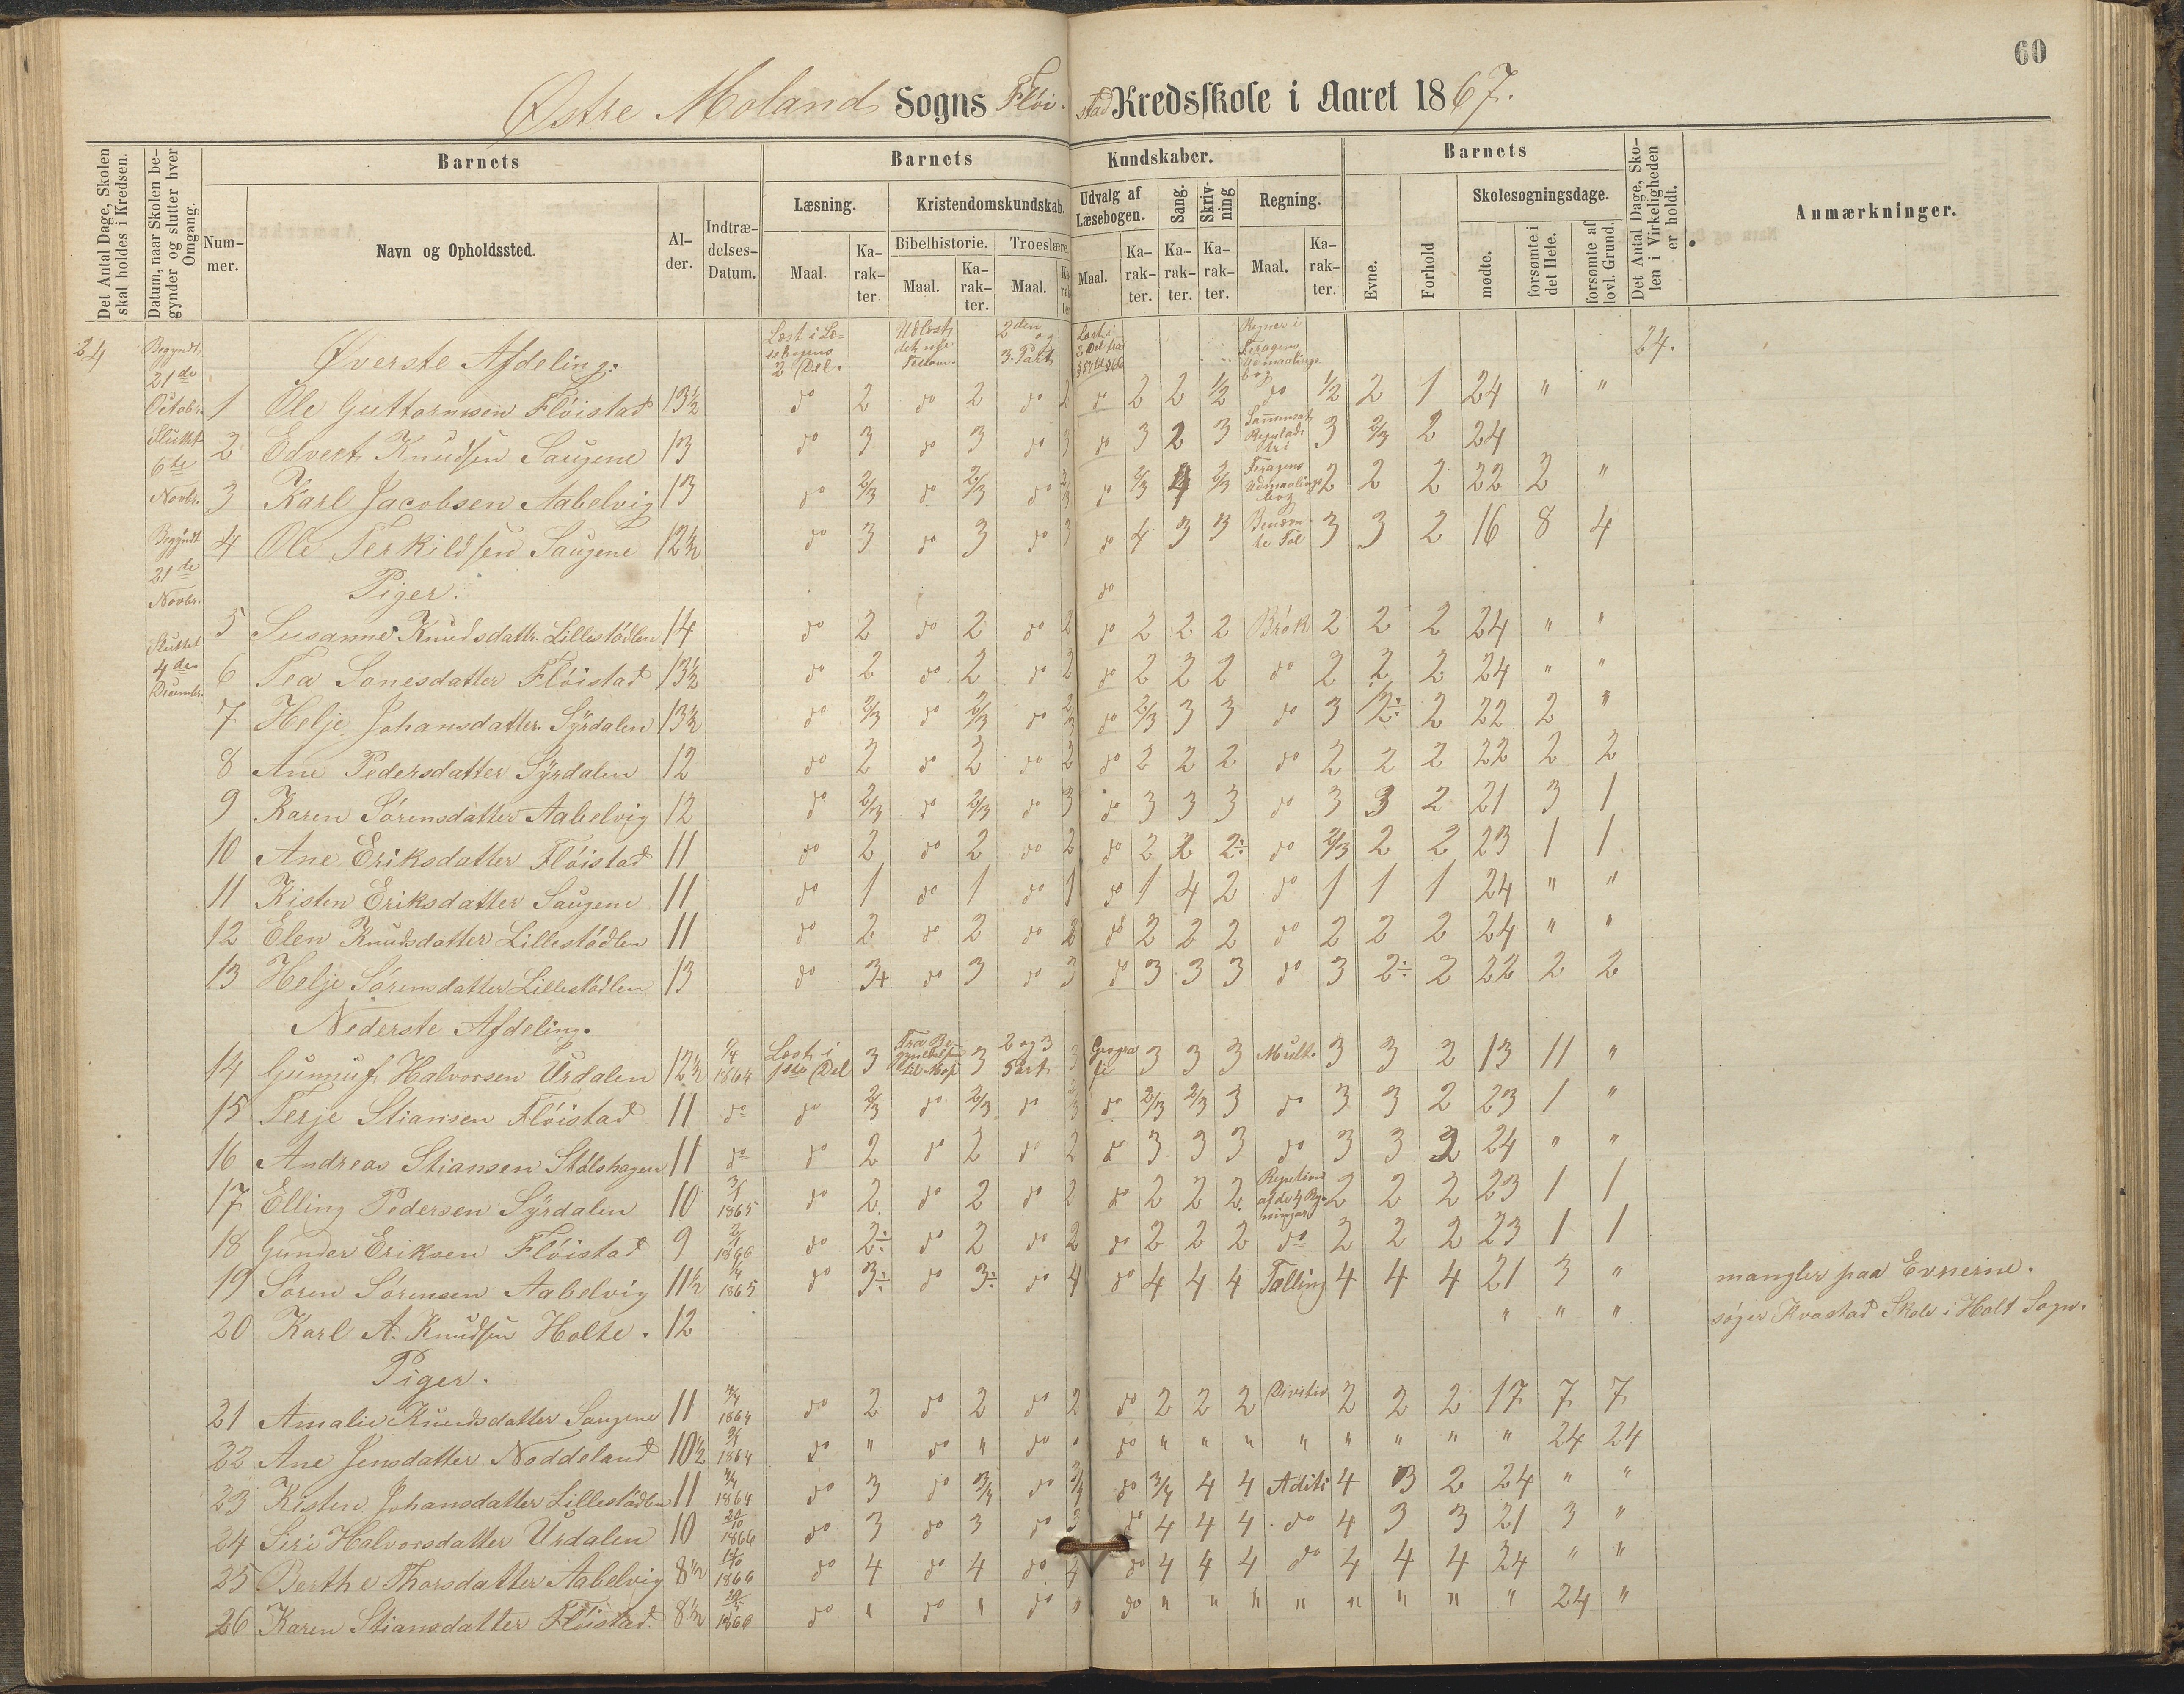 60
Østre Moland Sogns Flöi- stad Kredsskole i Aaret 1867.
Det Antal Dage, Skolen skal holdes i Kredsen.
Datum, naar Skolen begynder og slutter hver Omgang.
Barnets
Nummer.
Navn og Opholdssted.
Alder.
Indtrædelses-Datum.
Barnets Kundskaber.
Læsning.
Maal.
Karakter
Kristendomskundskab.
Bibelhistorie.
Maal.
Karakter.
Troeslære.
Maal.
Karakter
Udvalg af Læsebogen.
Maal.
Karakter.
Sang.
Karakter.
Skrivning
Karakter.
Regning.
Maal.
Karakter.
Barnets
Evne.
Forhold
Skolesøgningsdage.
mødte.
forsømte i det Hele.
forsømte af lovl. Grund.
Det Antal Dage, Skolen i Virkeligheden er holdt.
Anmærkninger.
24 Begyndt 21de Octobr. Sluttet 6te Novbr. Begyndt 21de Novbr. Sluttet 4de Decembr.
Øverste Afdeling: Læst i Læsebogens 2 Del. Udlæst det nye Testam. 2den og 3. Part Læst i 2 Del fra Regner i Feragens Udmaalingsbog 24.
1 Ole Guttormsen Flöistad 13½ do 2 do 2 do 2 do 2 2 ½ do ½ 2 1 24 " "
2 Edvert Knudsen Saugene 13 do 3 do 3 do 3 do 3 2 3 3 2/3 2 24
3 Karl Jacobsen Aabelvig 13 do 2/3 do 2/3 do 2/3 do 2/3 4 2/3 Feragens Udmaalingsbog 2 2 2 22 2 "
4 Ole Terkildsen Saugene 12½ do 3 do 3 do 3 do 4 3 3 Benævnte Tal 3 3 2 16 8 4
Piger. do
5 Susanne Knudsdattr. Lillestödlen 14 do 2 do 2 do 2 do 2 2 2 Brök 2 2 2 24 " "
6 Tea Sanesdatter Flöistad 13½ do 2 do 2 do 2 do 2 2 2 do 2 2 2 24 " "
7 Helje Johansdatter Sÿrdalen 13½ do 2/3 do 2/3 do 2/3 do 2/3 3 3 do 3 2÷ 2 22 2 "
8 Ane Pedersdatter Sÿrdalen 12 do 2 do 2 do 2 do 2 2 2 do 2 2 2 22 2 2
9 Karen Sørensdatter Aabelvig 12 do 2/3 do 2/3 do 3 do 3 3 3 do 3 3 2 21 3 1
10 Ane Eriksdatter Flöistad 11 do 2 do 2 do 2 do 2 2 2÷ do 2/3 2 2 23 1 1
11 Kisten Eriksdatter Saugene 11 do 1 do 1 do 1 do 1 4 2 do 1 1 1 24 " "
12 Elen Knudsdatter Lillestödlen 11 do 2 do 2 do 2 do 2 2 2 do 2 2 2 24 " "
13 Helje Sørensdatter Lillestödlen 13 do 3+ do 3 do 3 do 3 3 3 do 3 2÷ 2 22 2 2
Nederste Afdeling.
14 Gunnuf Halvorsen Urdalen 12½ 1864 Læst i 1ste Del 3 3 2 og 3 Part 3 Geografi 3 3 3 Mult. 3 3 2 13 11 "
15 Terje Stiansen Flöistad 11 do do 2/3 do 2/3 do 2/3 do 2/3 2/3 3 do 3 3 2 23 1 "
16 Andreas Stiansen Stölshagen 11 do do 2 do 2 do 2 do 3 3 3 do 3 3 2 24 " "
17 Elling Pedersen Sÿrdalen 10 1865 do 2 do 2 do 2 do 2 2 2 2 2 2 23 1 1
18 Gunder Eriksen Flöistad 9 1866 do 2÷ do 2 do 2 do 2 2 2 do 2 2 2 23 1 1
19 Sören Sørensen Aabelvig 11½ 1865 do 3÷ do 3÷ do 4 do 4 4 4 Talling 4 4 4 21 3 " mangler paa Evnerne.
20 Karl A. Knudsen Holte. 12 " " " søger Kvastad Skole i Holt Sogn.
Piger.
21 Amalie Knudsdatter Saugene 11 1864 do 2 do 2 do 2 do 2 2 2 Divition 2 2 2 17 7 7
22 Ane Jensdatter Noddeland 10½ 1864 do " do " do " do " " " " " " " " 24 24
23 Kisten Johansdatter Lillestödlen 11 1864 do 3 do 3/4 do 3/4 do 3/4 4 4 Aditi 4 3 2 24 " "
24 Siri Halvorsdatter Urdalen 10 20/10 1866 do 3 do 3 do 3 do 4 4 4 do 4 3 3 21 3 "
25 Berthe Thorsdatter Aabelvig 8½ 1866 do 4 do 4 do 4 do 4 4 4 do 4 4 4 24 " "
26 Karen Stiansdatter Flöistad. 8½ 1866 do " do " do " do " " " " " " " " 24 "